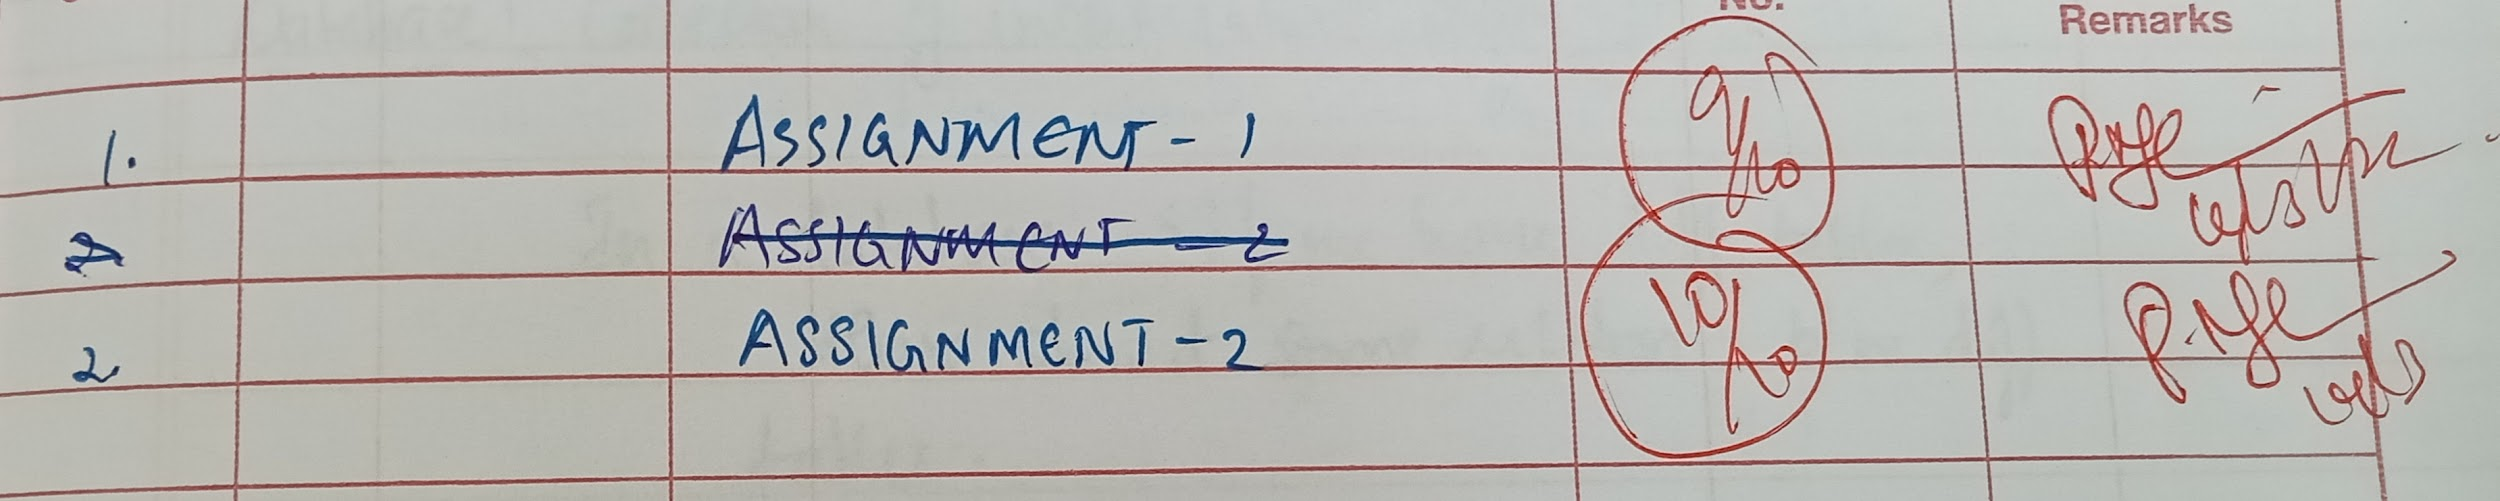 No. Remarks
1. ASSIGNMENT - 1 9/10
2 ASSIGNMENT - 2
2 ASSIGNMENT - 2 10/10